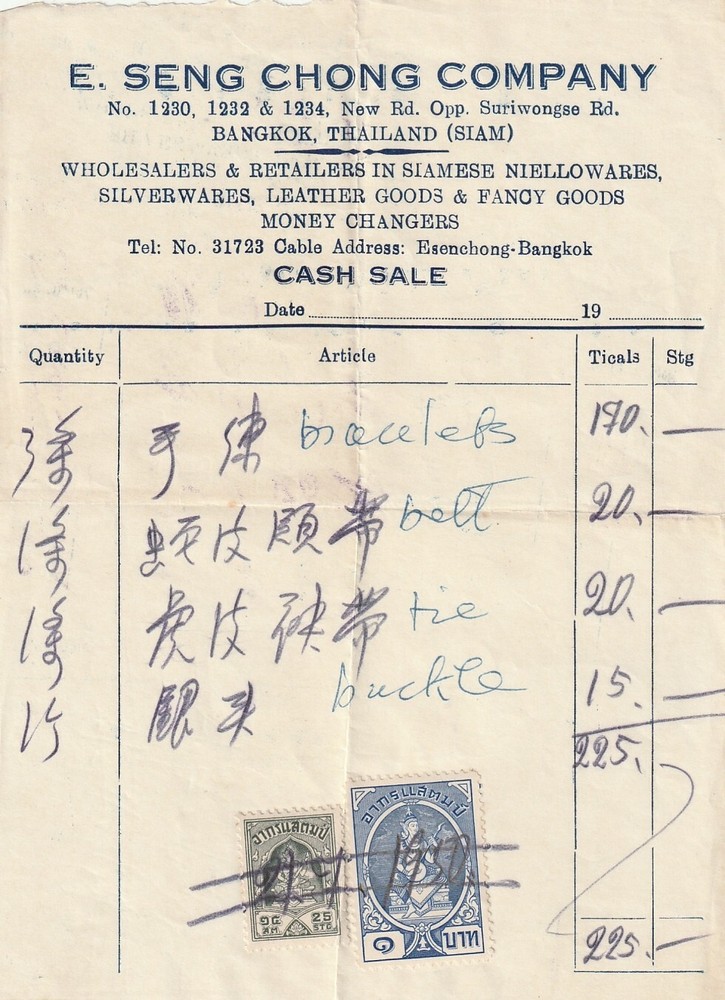 E. SENG CHONG COMPANY
No. 1230, 1232 & 1234, New Rd. Opp. Suriwongse Rd.
BANGKOK, THAILAND (SIAM)
WHOLESALERS & RETAILERS IN SIAMESE NIELLOWARES,
SILVERWARES, LEATHER GOODS & FANCY GOODS
MONEY CHANGERS
Tel: No. 31723 Cable Address: Esenchong-Bangkok
CASH SALE
Date 19
Quantity Article Ticals Stg
手 bracelets 170.—
皮 帶 belt 20.—
虎皮 帶 tie 20.—
buckle 15.—
225.
อากรแสตมป์ อากรแสตมป์
1950.
๑๕ สต. 25 STG. ๑ บาท
225.—